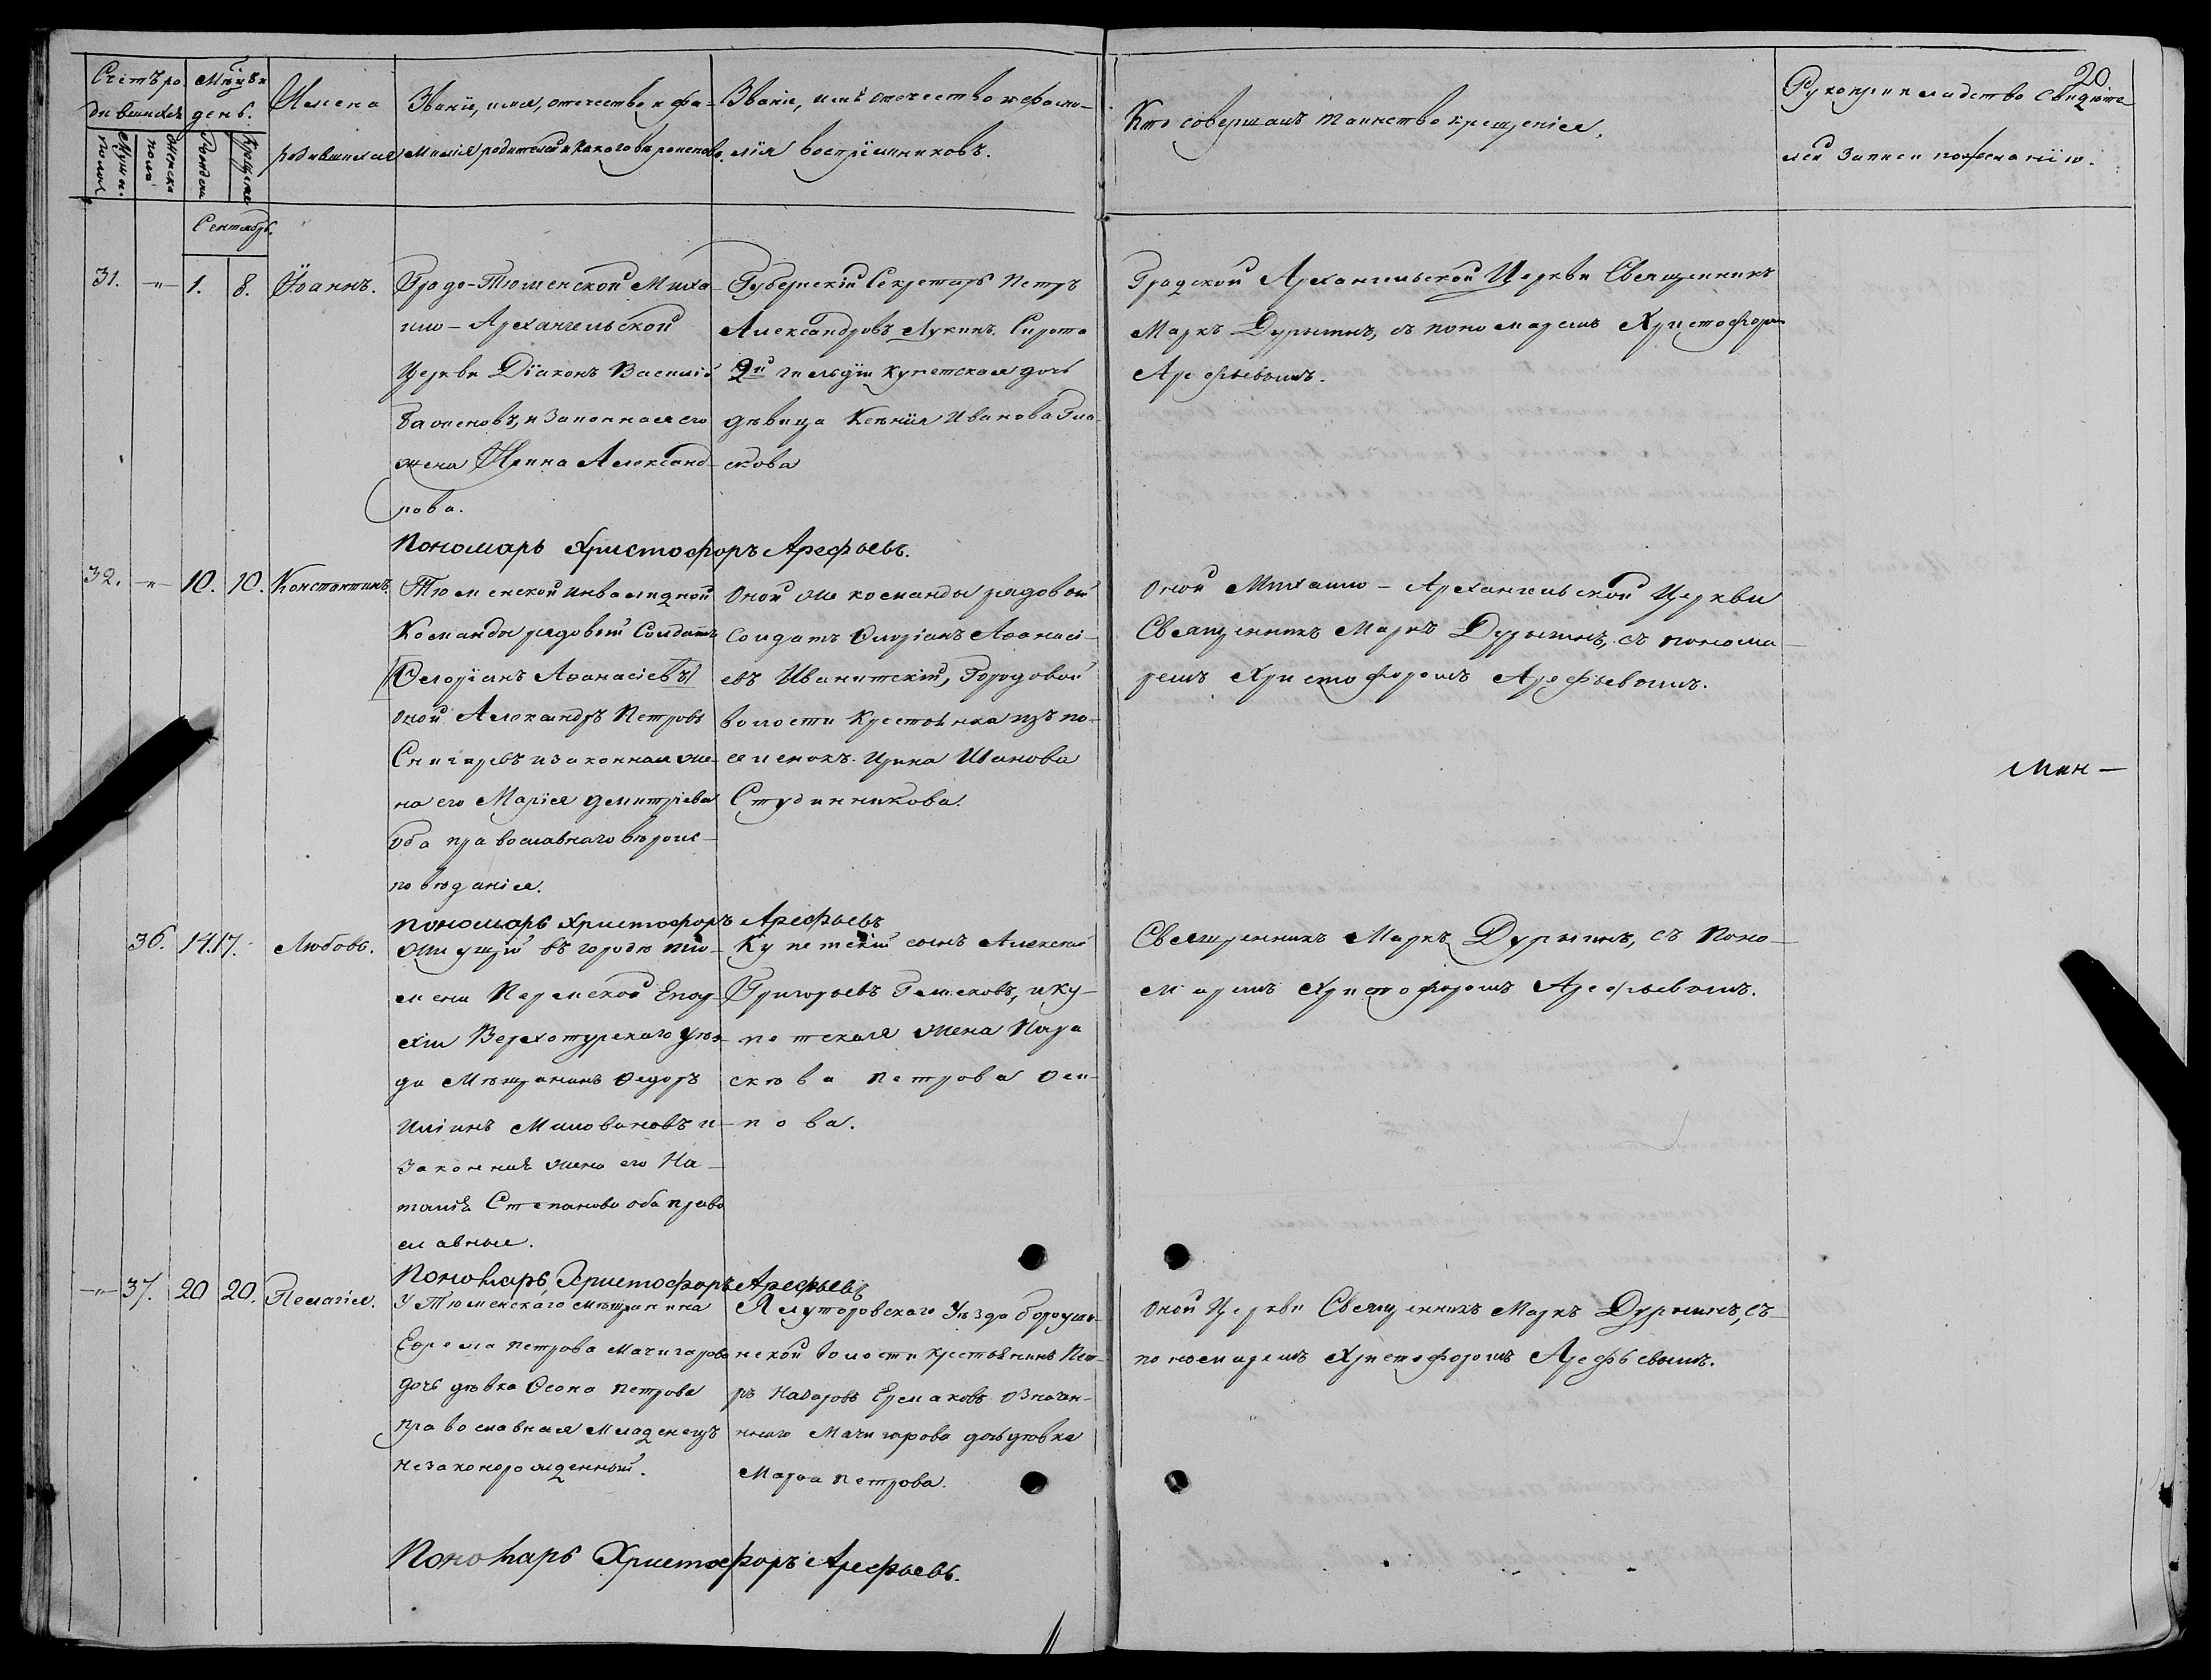 20.
Счетъ ро-
дившихся
Мѣсяцъ и
день.
Имена
родившихся
Званіе, имя, отечество и фа-
милія родителей и какого вѣроисповѣ.
Званіе, имя отечество и фами-
лія воспріемниковъ.
Кто совершалъ таинство крещенія.
Рукоприкладство свидѣте-
лей записи по желанію.
Мужес.
пола
Женска
пола
Рожденія
Крещенія
Сентябрь.
31. -„- 1. 8. Іоаннъ.
Градо-Тюменской Миха-
ило-Архангельской
Церкви Діаконъ Василій
и законная его
жена Ирина Александ-
рова.
Губернскій Секретарь Петръ
Александровъ Лукинъ. Сирота
2й гильдіи купетская дочь
дѣвица Ксенія Иванова
Градской Архангельской Церкви Священникъ
Маркъ Дурынинъ, съ пономаремъ Христофоромъ
Арефьевымъ.
Пономарь Христофоръ Арефьевъ.
32. -„- 10. 10. Константинъ.
Тюменской инвалидной
Команды рядовой Солдатъ
[Флоріанъ Аѳанасіевъ]
оной Александръ Петровъ
Снигиревъ и законная же-
на его Марія Дмитріева
оба православнаго вѣроис-
повѣданія.
Оной же команды рядовой
солдатъ Флоріанъ Аѳанасі-
евъ Иванитскій, Городовой
волости Крестьянка изъ по-
селенокъ Ирина Иванова
Студинникова.
Оной Михаило-Архангельской Церкви
Священникъ Маркъ Дурынинъ, съ понома-
ремъ Христофоромъ Арефьевымъ.
Мин-
Пономарь Христофоръ Арефьевъ
36. 14. 17. Любовь.
Живущій въ городѣ Тю-
мени Пермской Епар-
хіи Верхотурскаго уѣз-
да Мѣщанинъ Федоръ
Иліинъ Миловановъ и
законная жена его На-
талія Степанова оба право
славные.
Купетскій сынъ Алексѣй
Григорьевъ и ку-
петская жена Пара
скева Петрова Оси-
пова.
Священникъ Маркъ Дурынинъ, съ Поно-
маремъ Христофоромъ Арефьевымъ.
Пономарь Христофоръ Арефьевъ
-„- 37. 20 20. Пелагія.
У Тюменскаго мѣщанина
Ефрема Петрова Мачигарова
дочь дѣвка Петрова
православная младенецъ
незаконорожденный.
Ялуторовскаго Уѣзда
волости крестьянинъ Пет-
ръ Назаровъ Ермаковъ означен-
ннаго Мачигарова дочь дѣвка
Марѳа Петрова.
Оной Церкви Священникъ Маркъ Дурынинъ, съ
пономаремъ Христофоромъ Арефьевымъ.
Пономарь Христофоръ Арефьевъ.